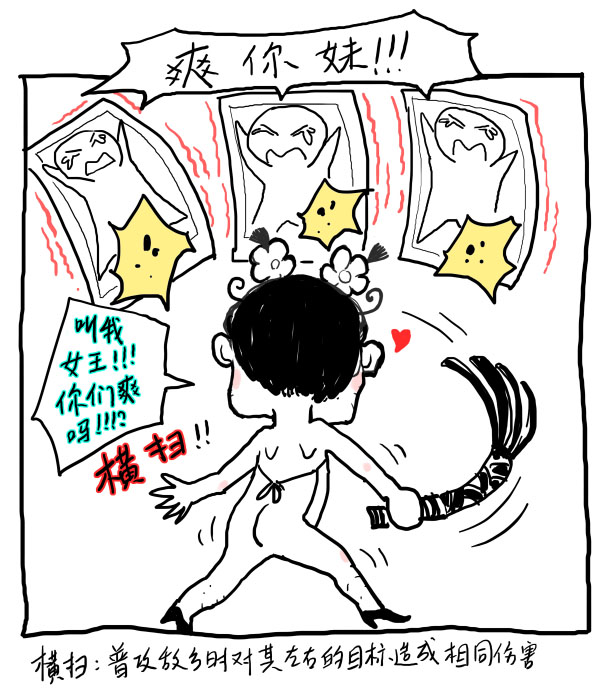 爽你妹!!!
叫我
女王!!!
你们爽
吗!!!?
横扫!!
横扫：普攻敌方时对其左右的目标造成相同伤害